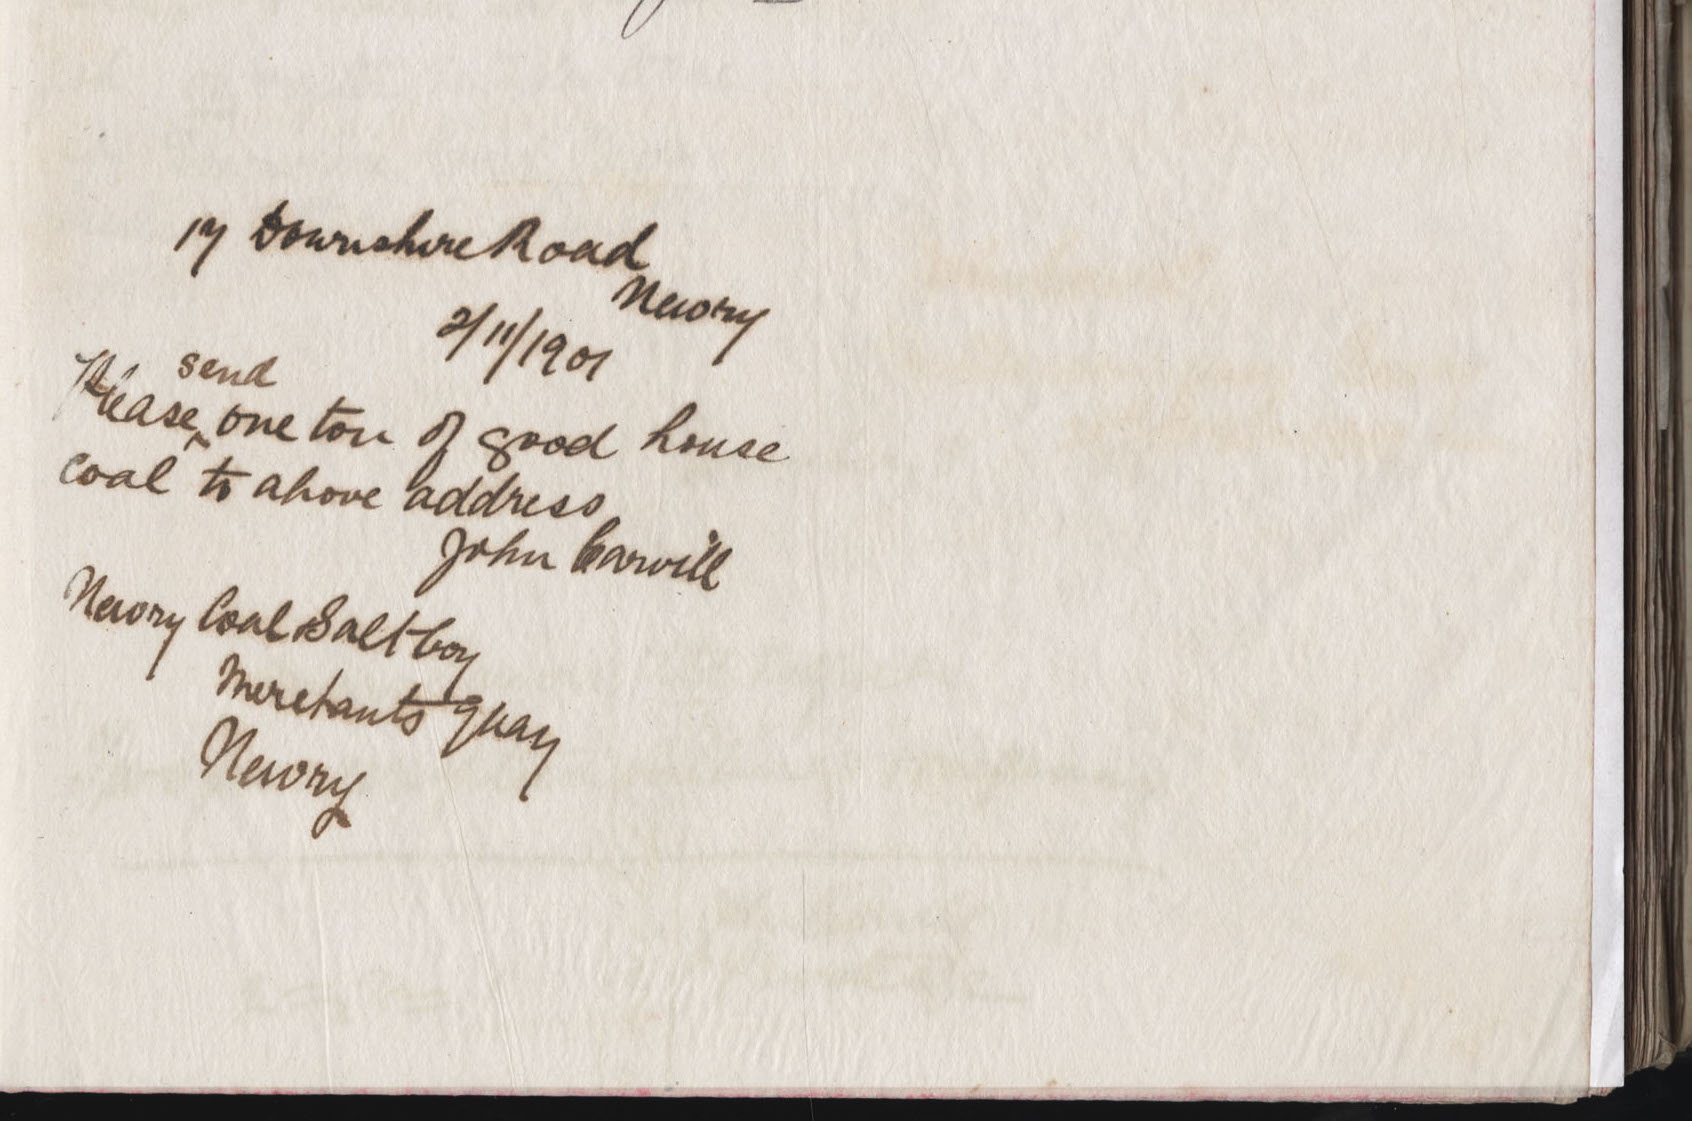 17 Downshire Road
Newry
2/11/1901
send
Please ^ one ton of good house
coal to above address
John Carvill
Newry Coal Salt Coy
Merchants Quay
Newry